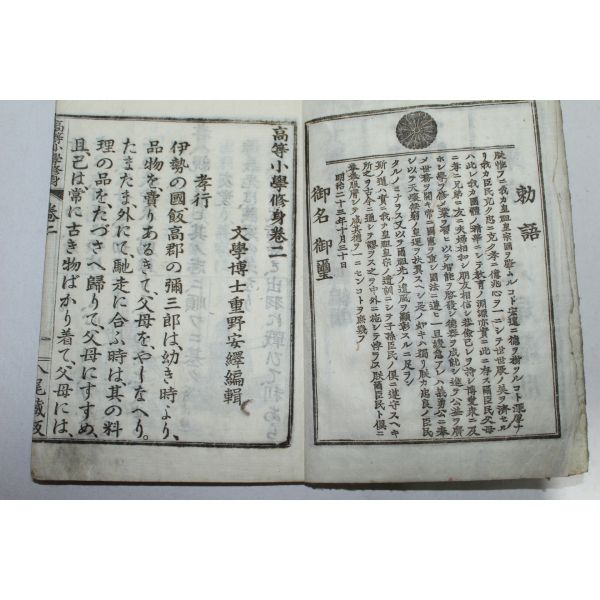 勅語
朕惟フニ我カ皇祖皇宗國ヲ肇ムルコト宏遠ニ德ヲ樹ツルコト深厚ナ
リ我カ臣民克ク忠ニ克ク孝ニ億兆心ヲ一ニシテ世世厥ノ美ヲ濟セル
ハ此レ我カ國體ノ精華ニシテ教育ノ淵源亦實ニ此ニ存ス爾臣民父母
ニ孝ニ兄弟ニ友ニ夫婦相和シ朋友相信シ恭儉己レヲ持シ博愛衆ニ及
ホシ學ヲ修メ業ヲ習ヒ以テ智能ヲ啓發シ德器ヲ成就シ進テ公益ヲ廣
メ世務ヲ開キ常ニ國憲ヲ重シ國法ニ遵ヒ一旦緩急アレハ義勇公ニ奉
シ以テ天壤無窮ノ皇運ヲ扶翼スヘシ是ノ如キハ獨リ朕カ忠良ノ臣民
タルノミナラス又以テ爾祖先ノ遺風ヲ顯彰スルニ足ラン
斯ノ道ハ實ニ我カ皇祖皇宗ノ遺訓ニシテ子孫臣民ノ俱ニ遵守スヘキ
所之ヲ古今ニ通シテ謬ラス之ヲ中外ニ施シテ悖ラス朕爾臣民ト俱ニ
拳拳服膺シテ咸其德ヲ一ニセンコトヲ庶幾フ
明治二十三年十月三十日
御名 御璽
高等小學修身卷二
文學博士重野安繹編輯
孝行
伊勢の國飯高郡の彌三郎は幼き時より、
品物を賣りあるきて、父母をやしなへり。
たまたま外にて馳走に合ふ時は其の料
理の品をたづさへ歸りて、父母にすすめ、
且己は常に古き物ばかり着て父母には、
高等小學修身 卷二
八尾藏版